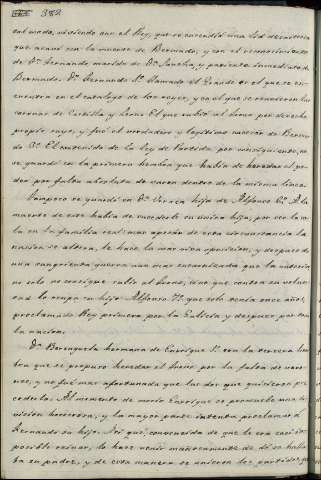 382
cal modo, viviendo aun el Rey, que se encendió una lid
que acavó con la muerte de Bermudo, y con el reconocimiento
de Dn. Fernando marido de Dª. Sancha, y pariente inmediato de
Bermudo. Dn. Fernando 1º. llamado el Grande es el que se en-
cuentra en el catalogo de los reyes, y en el que se reunieron las
coronas de Castilla y Leon: El que subió al trono por derecho
propio suyo, y fué el verdadero y legitimo succesor de Bermu-
do 3º. El contenido de la ley de Partida, por consiguiente, no
se guardó en la primera hembra que habia de heredar el po-
der por falta absoluta de varon dentro de la misma linea.
Tampoco se guardó en Dª. Urraca hija de Alfonso 6º. A la
muerte de este habia de sucederle su única hija, por ser la
la en su familia real: mas apesar de esta circunstancia la
nacion se altera, le hace la mas viva oposicion, y despues de
una sangrienta guerra aun mas encarnizada que la anterior
no solo no consigue subir al trono, sino que contra su volun-
tad lo ocupa su hijo Alfonso 7º. que solo tenia once años,
proclamado Rey primero por la Galicia y despues por toda
la nacion.
Dª. Berenguela hermana de Enrique 1º. era la tercera hem-
bra que se propuso heredar el trono por la falta de varo-
nes, y no fué mas afortunada que las dos que quisieron pre-
cederla. Al momento de morir Enrique se promueve una di-
vision horrorosa, y la mayor parte intenta proclamar á
Fernando su hijo. Asi que, convencida de que le era casi im-
posible reinar, lo hace venir mañosamente de do se halla-
ba su padre, y de esta manera se unieron los partidos que